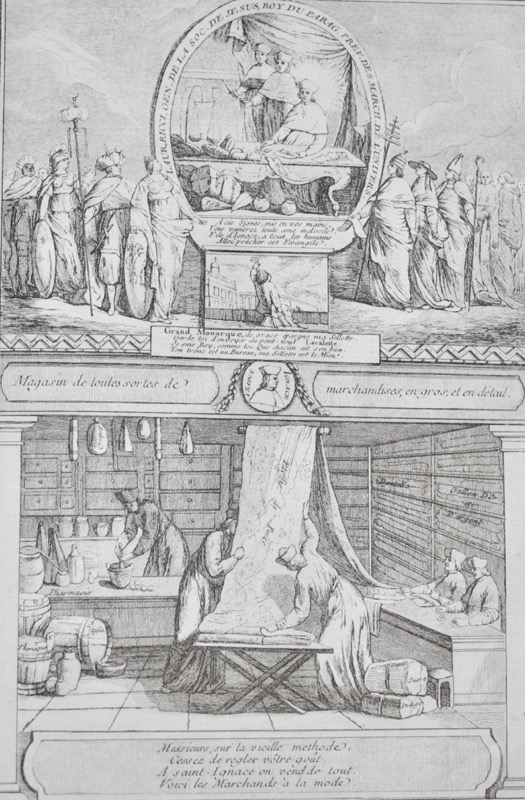 LAUR. RICCI GEN. DE LA SOC. DE JESUS, ROY DU PARAG. PREV. DES MARCH. DE L'UNIVERS.
A ces Signes, mis en vos mains,
Vous vaincrez toute ame indocile;
Fils d'Ignace, a tout les humains
Allez précher cet Evangile.
Grand Monarque, de grace epargne ma Sellette
Garde toi d'envoyer du pont-neuf Lavalette.
Je suis Roy, comme toi, Que chacun ait son bien
Ton trone est un Bureau, ma Sellette est le Mien.
Magasin de toutes sortes de
SAINT IGNACE
marchandises, en gros, et en detail.
Dentelle
Gallon D'Or
D'argent
Pharmacie
Theriaque
Sucre
Indigo
Messieurs, sur la vieille methode,
Cessez de regler vôtre gout.
A saint-Ignace on vend de tout.
Voici les Marchands à la mode.